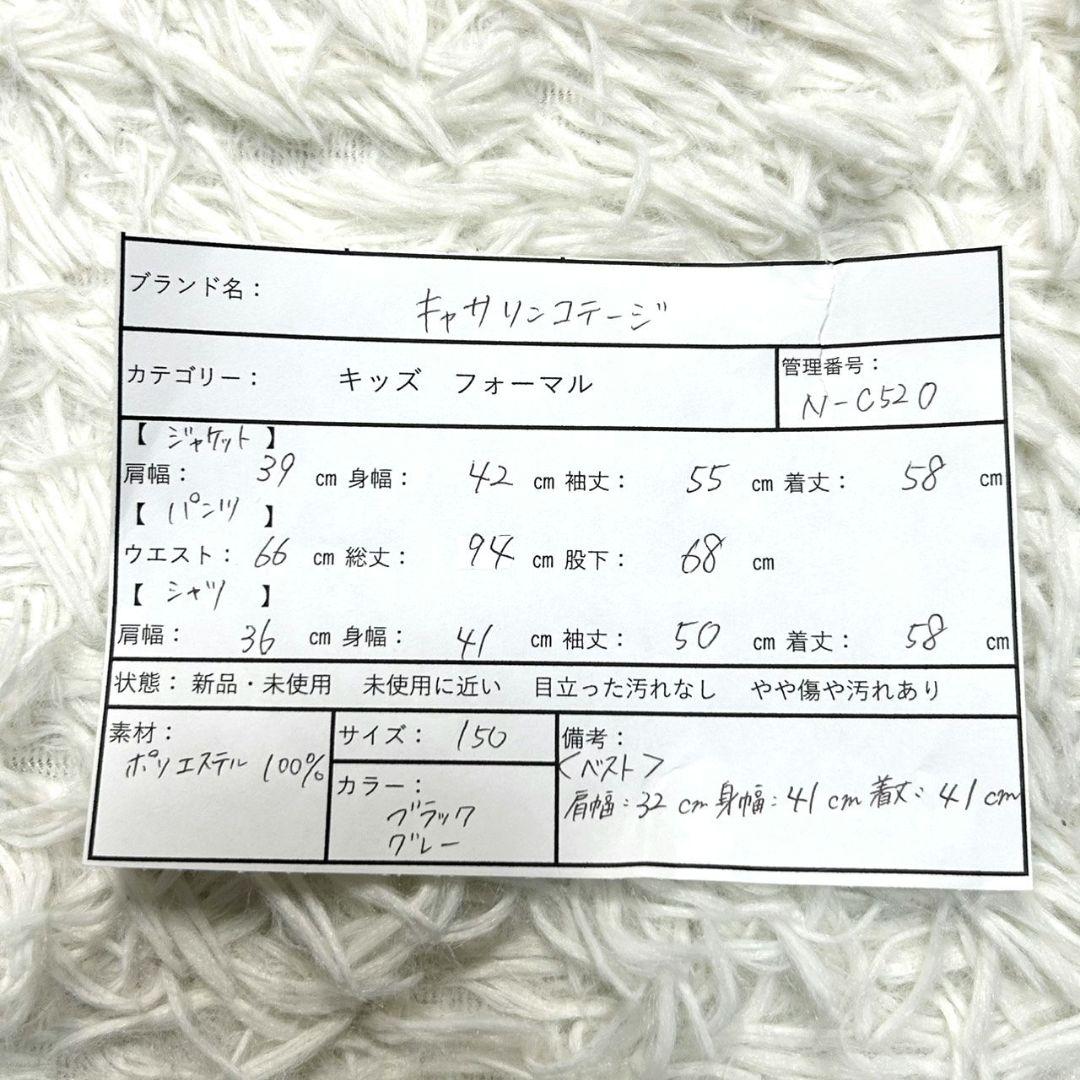 ブランド名： キャサリンコテージ
カテゴリー： キッズ フォーマル
管理番号：
N-C520
【 ジャケット 】
肩幅： 39 cm 身幅： 42 cm 袖丈： 55 cm 着丈： 58 cm
【 パンツ 】
ウエスト： 66 cm 総丈： 94 cm 股下： 68 cm
【 シャツ 】
肩幅： 36 cm 身幅： 41 cm 袖丈： 50 cm 着丈： 58 cm
状態：新品・未使用 未使用に近い 目立った汚れなし やや傷や汚れあり
素材：
ポリエステル 100%
サイズ： 150
カラー：
ブラック
グレー
備考：
＜ベスト＞
肩幅：32 cm 身幅：41 cm 着丈：41 cm